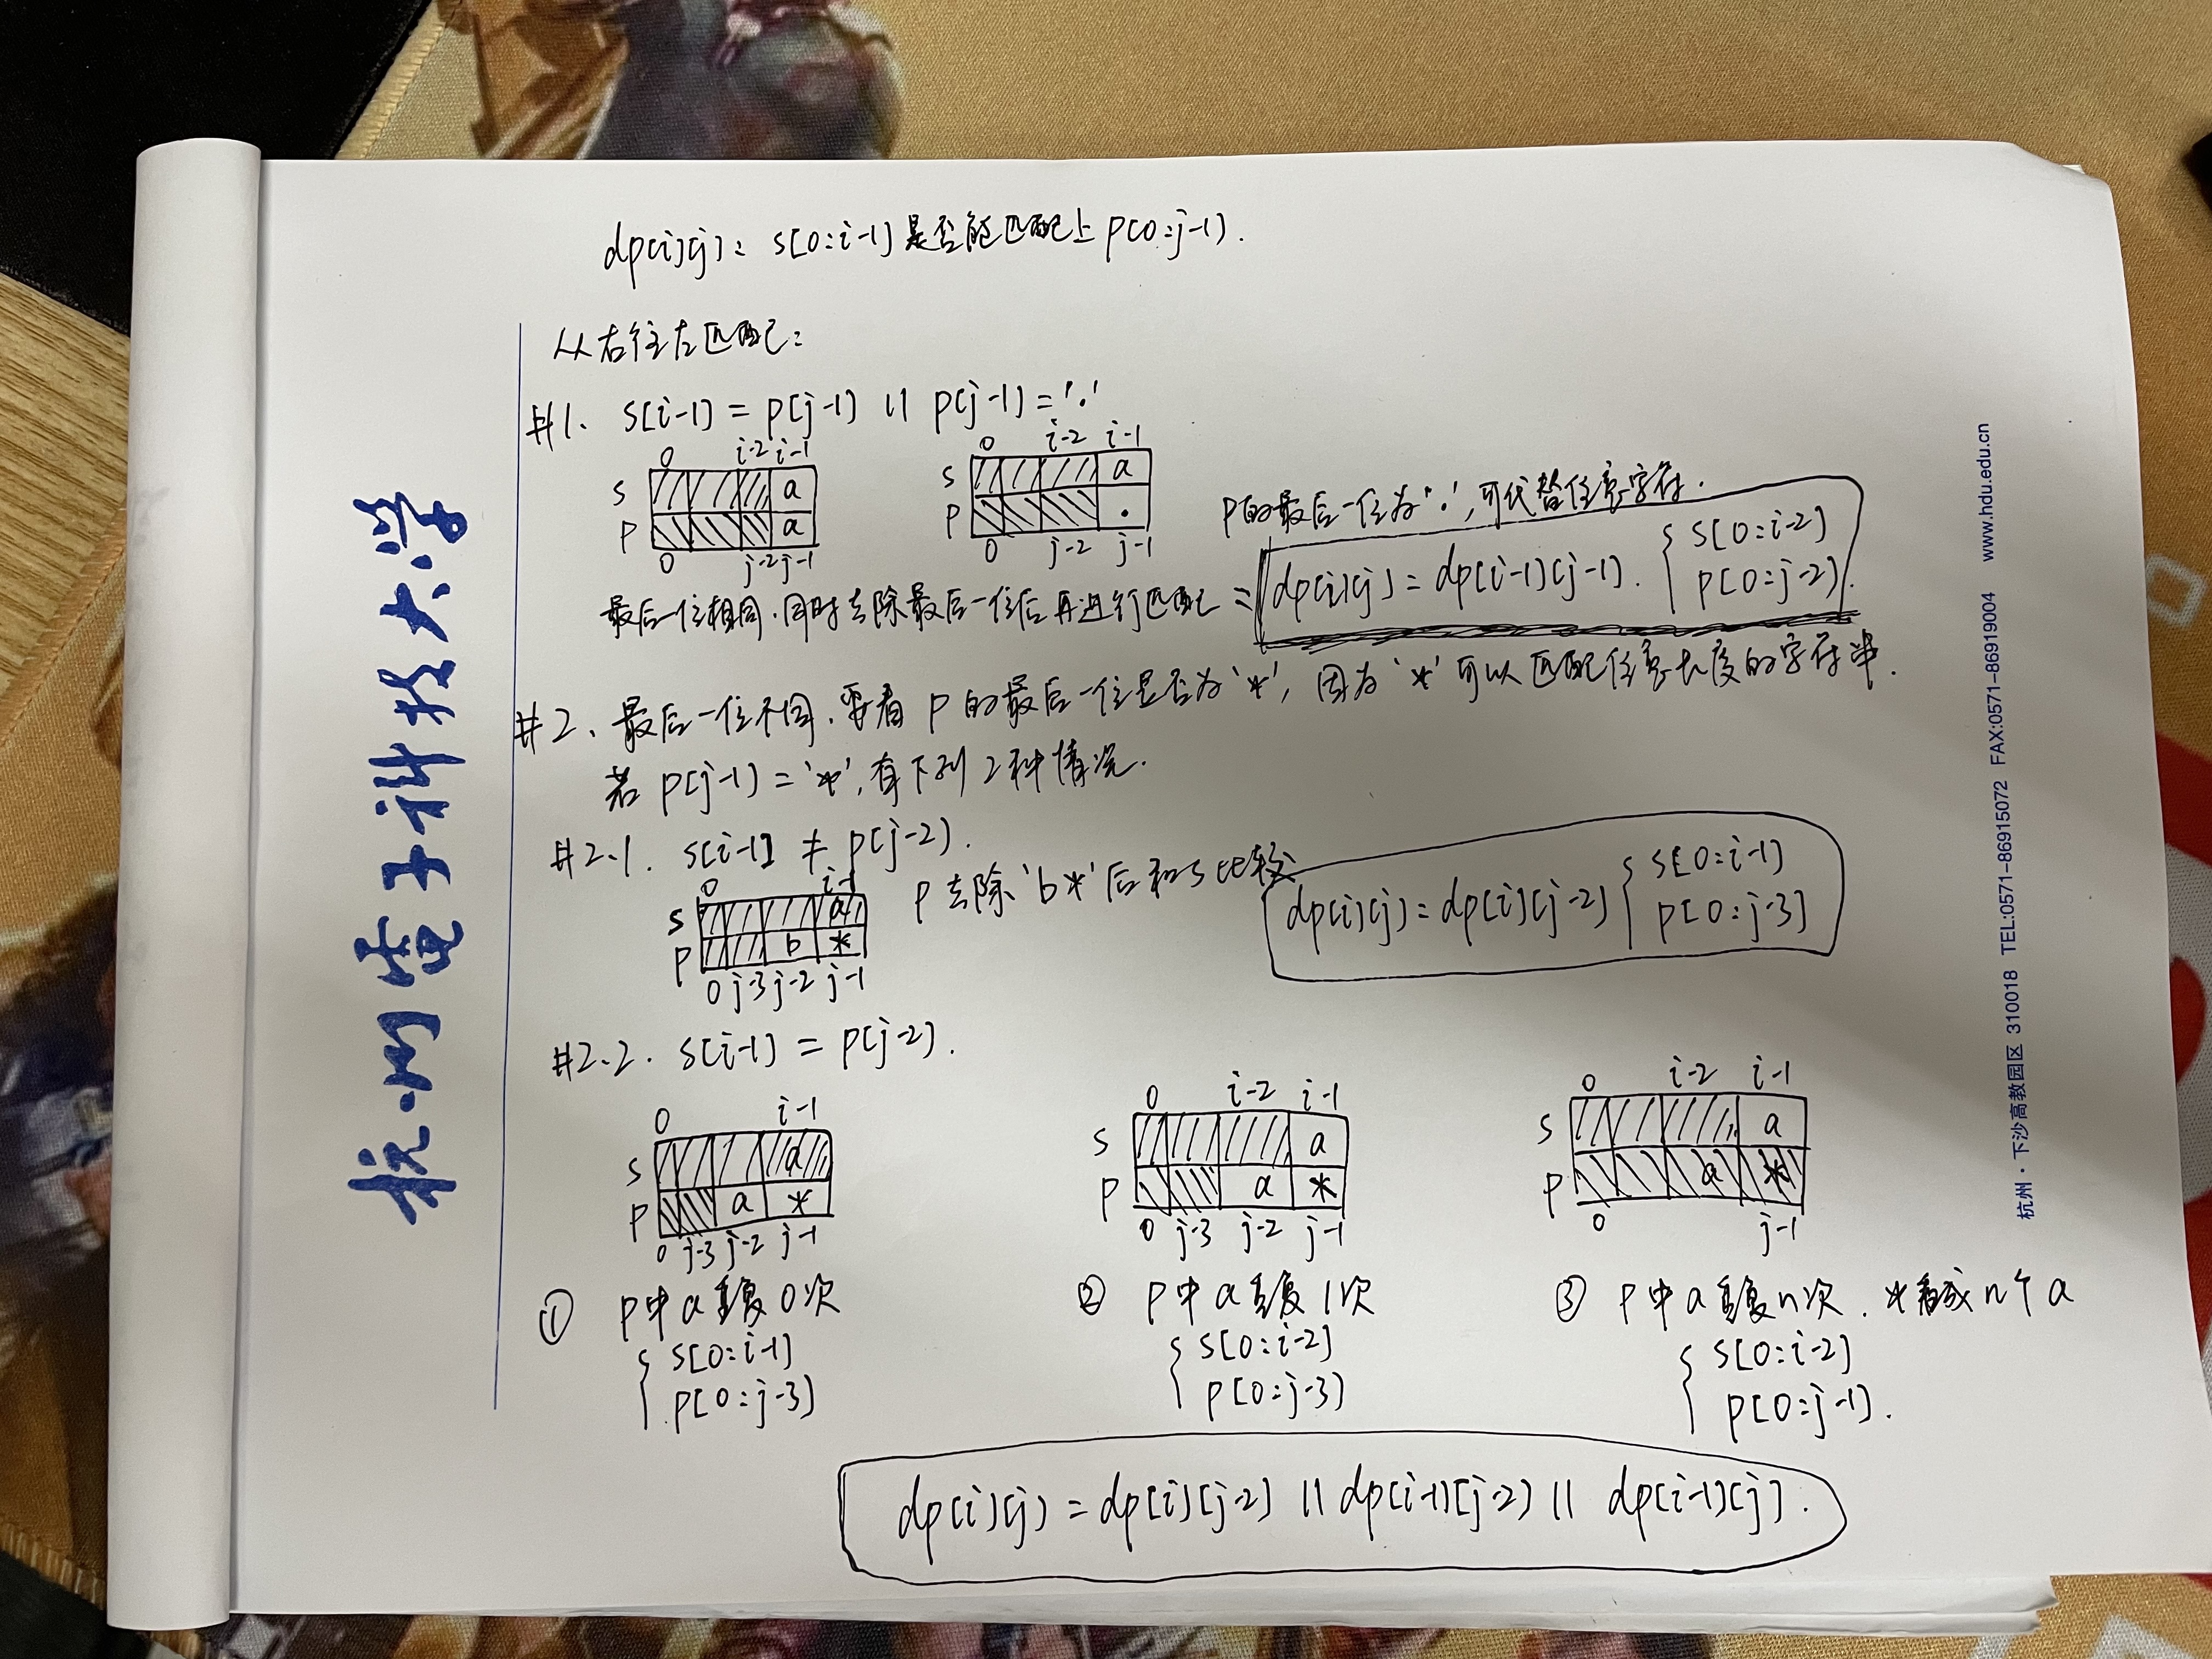 dp[i][j]: s[0:i-1]是否能匹配上p[0:j-1].
从右往左匹配:
#1. s[i-1] = p[j-1] || p[j-1] = '.'
0 i-2 i-1
s a
p a
0 j-2 j-1
0 i-2 i-1
s a
p .
0 j-2 j-1
p的最后一位为'.',可代替任意字符.
最后一位相同.同时去除最后一位后再进行匹配 = dp[i][j] = dp[i-1][j-1]. { s[0:i-2]
p[0:j-2].
#2、最后一位不同.要看p的最后一位是否为'*', 因为'*'可以匹配任意长度的字符串.
若p[j-1] = '*',有下列2种情况.
#2.1. s[i-1] ≠ p[j-2].
0 i-1
s a
p b *
0 j-3 j-2 j-1
p去除'b*'后和s比较
dp[i][j] = dp[i][j-2] { s[0:i-1]
p[0:j-3]
#2.2. s[i-1] = p[j-2].
0 i-1
s a
p a *
0 j-3 j-2 j-1
① p中a重复0次
{ s[0:i-1]
p[0:j-3]
0 i-2 i-1
s a
p a *
0 j-3 j-2 j-1
② p中a重复1次
{ s[0:i-2]
p[0:j-3]
0 i-2 i-1
s a
p a *
0 j-1
③ p中a重复n次.*看成n个a
{ s[0:i-2]
p[0:j-1].
dp[i][j] = dp[i][j-2] || dp[i-1][j-2] || dp[i-1][j].
杭州电子科技大学
杭州·下沙高教园区 310018 TEL:0571-86915072 FAX:0571-86919004 www.hdu.edu.cn